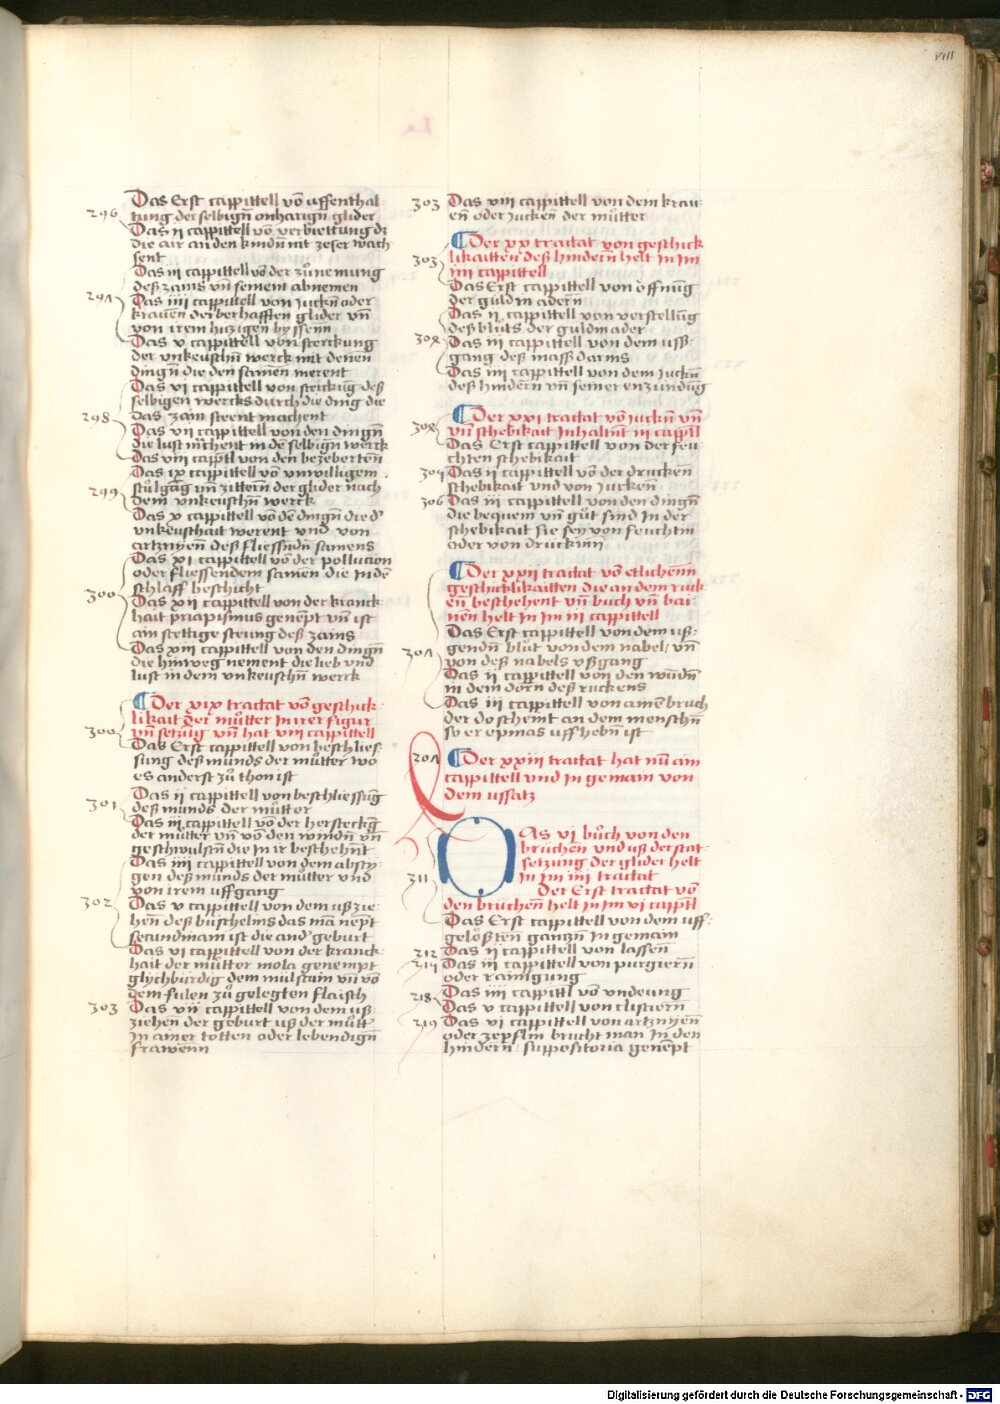 VIII
Das Erst cappittell vō uffenthal-
tung der selbigñ onhangñ glider
296
Das ij cappittell vō verbiettung dz
die air an den kindñ mit zeser wach
sent
Das iij cappittell vō der zůnemung
deß zams vñ seinem abnemen
297
Das iiij cappittell von Juckñ oder
krauen der berhafften glider vñ
von irem hitzigen byssenn
Das v cappittell von sterckung
der vnkeuschñ werck mit denen
dingñ die den samen merent
Das vi cappittell von sterckūg deß
selbigen wercks durch die ding die
298
das zam steent machent
Das vij cappittell von den dingñ
die lust machent in dē selbigñ werck
Das viij cappitl von den
Das ix cappittell vō vnwilligem
299
stůlgāg vñ zittern der glider nach
dem vnkeuschñ werck
Das x cappittell vō dē dingñ die d'
vnkeuschait werent vnd von
artznyen deß fliessndñ samens
Das xi cappittell vō der pollucion
oder fliessendem samen die in dē
schlaff beschicht
300
Das xij cappittell von der kranck
hait priapismus genēpt vñ ist
ain stettige steung deß zams
Das xiij cappittell von den dingñ
die hinweg nement die lieb vnd
lust in dem vnkeuschñ werck
Der xix tractat vō geschick-
likait der můtter In irer figur
300
vñ setzūg vñ hat viij cappittell
Das Erst cappittell von beschlies-
sung deß munds der můtter wo
es anderst zů thon ist
Das ij cappittell von beschliessūg
301
deß munds der můtter
Das iij cappittell vō der hersteckg
der můtter vñ vō den windñ vñ
geschwulstñ die in ir beschehñt
Das iiij cappittell von dem absty-
gen deß munds der můtter vnd
von irem uffgang
302
Das v cappittell von dem ußzie-
hen deß büschelins das mā nēpt
secundinam ist die and' geburt
Das vi cappittell von der kranck-
hait der můtter mola genempt
glychbürdig dem mülstain vñ vō
dem fulen zů gelegten flaisch
303
Das vij cappittell von dem uß-
ziehen der geburt uß der můtt'
In ainer totten oder lebendigñ
frawenn
303
Das viij cappittell von dem krau-
en oder Jucken der můtter
Der xx tractat von geschick
likaitten deß hindern helt In Im
303
iiij cappittell
Das Erst cappittell von öffnūg
der guldin adern
Das ij cappittell von verstellūg
deß blůts der guldin ader
304
Das iij cappittell von dem uss-
gang deß mass darms
Das iiij cappittell von dem Juckñ
deß hindern vñ seiner enzündūg
Der xxi tractat vō juckñ vñ
304
vñ schebikait Inhaltñt iij cappitl
Das Erst cappittell von der feu-
chten schebikait
305
Das ij cappittell vō der drucken
schebikait und von Juckenn
306
Das iij cappittell von den dingñ
die bequem vñ gůt sind In der
schebikait Sie sey von feuchtin
oder von druckinn
Der xxij tractat vō etlichenn
geschicklikaitten die an dem ruck
en beschehent vñ buch vñ bai-
nen helt in Im iij cappittell
Das Erst cappittell von dem uß-
gendñ blůt von dem nabel vñ
307
von deß nabels vßgang
Das ij cappittell von den wūdñ
in dem dorn deß ruckens
Das iij cappittell von ainē bruch
der do scheint an dem menschñ
so er epmas uffhebñ ist
207
Der xxiij tractat hat nū ain
cappittell vnd In gemain von
dem ussatz
DAs vi bůch von den
brüchen vnd uß der stat-
setzung der glider helt
311
in Im iiij tractat
Der Erst tractat vō
den brüchen helt in Im vi cappitl
Das Erst cappittell von dem uff-
gelößten gantzñ In gemain
212
Das ij cappittell von lassenn
214
Das iij cappittell von purgiern
oder rainigung
218
Das iiij cappittl vō vndeung
Das v cappittell von clistiern
219
Das vi cappittell von artznyen
oder zepflin brucht man In den
hindern / suppositoria genēpt
Digitalisierung gefördert durch die Deutsche Forschungsgemeinschaft - DFG